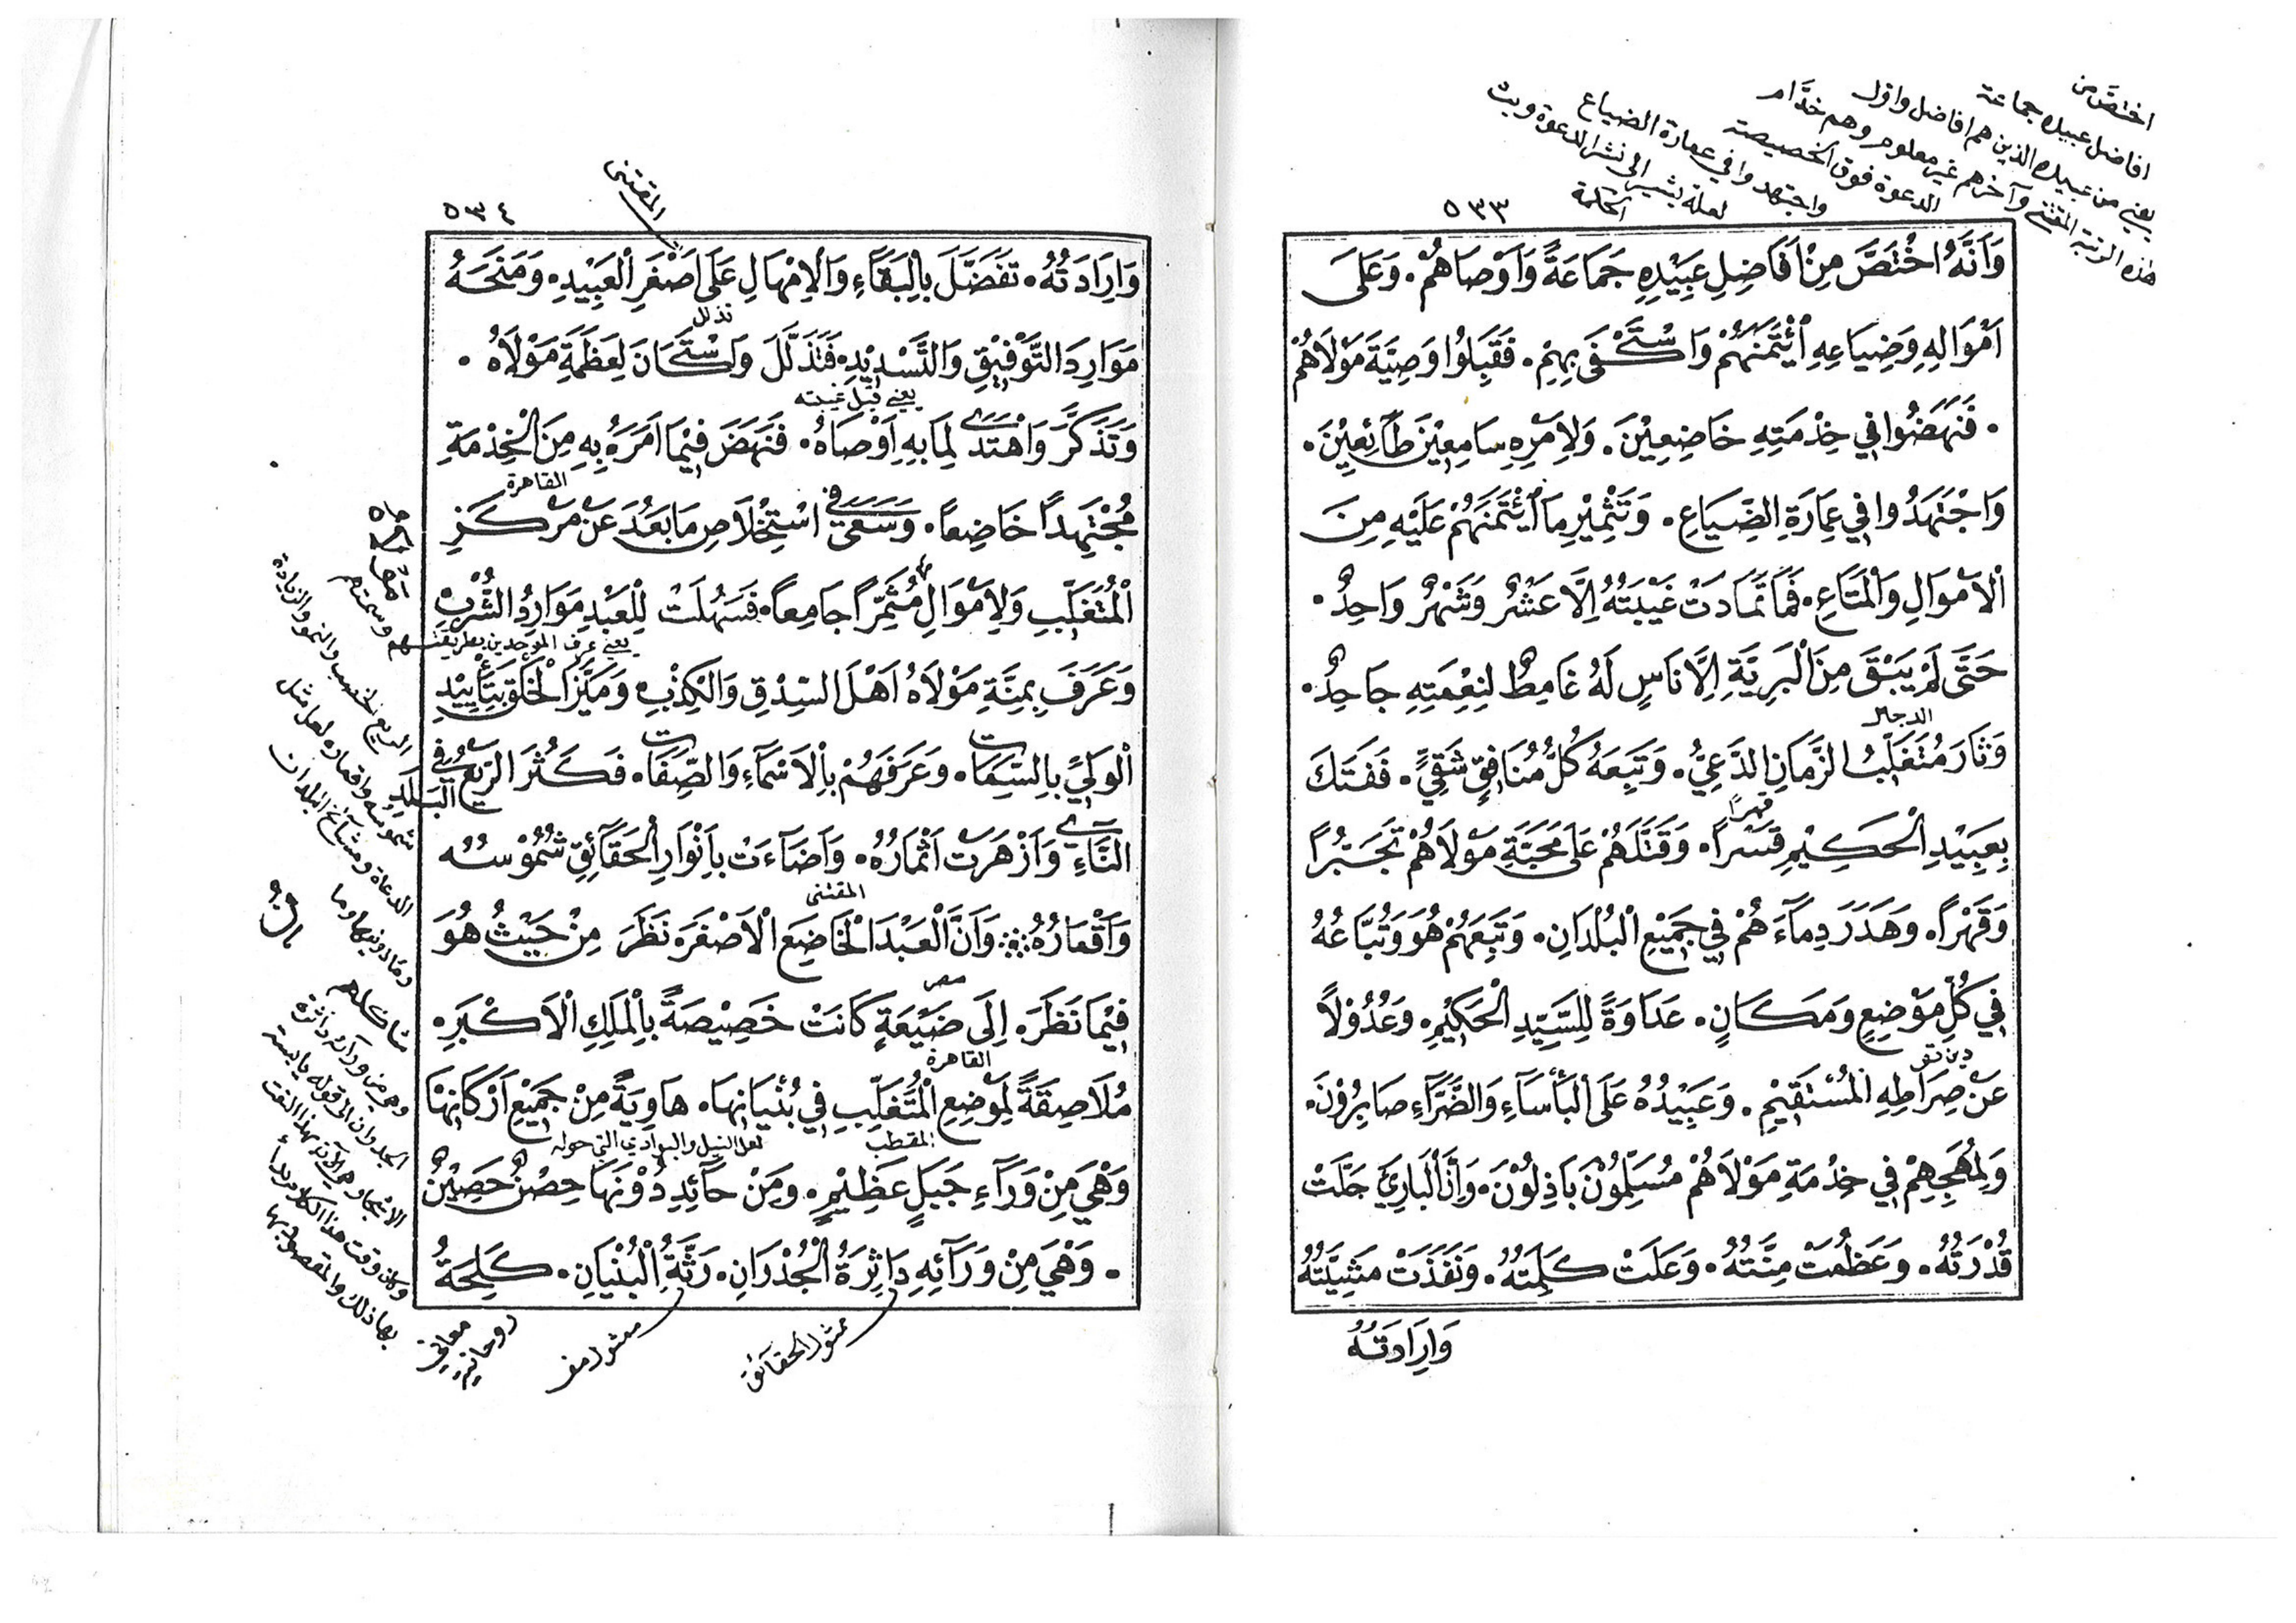 اختصَّ من
افاضل عبيده جماعة
يعني من عبيده الذين هم افاضل واول
هذه الرتبة المقتنى وآخرهم غير معلوم وهم خدَّام
الدعوة فوق الخصيصة
واجتهدوا في عمارة الضياع
لعله يشير الى نشر الدعوة وبث
الحكمة
٥٣٣
وَاَنَّهُ اخْتَصَّ مِنْ اَفَاضِلِ عَبِيْدِهِ جَمَاعَةً وَاَوْصَاهُمْ. وَعَلَى
اَمْوَالِهِ وَضِيَاعِهِ اُئْتَمَنَهُمْ وَاسْتَكْفَى بِهِمْ. فَقَبِلُوا وَصِيَّةَ مَوْلَاهُمْ
. فَنَهَضُوا فِي خِدْمَتِهِ خَاضِعِيْنَ. وَلِاَمْرِهِ سَامِعِيْنَ طَآئِعِيْنَ.
وَاجْتَهَدُوا فِي عِمَارَةِ الضِّيَاعِ. وَتَثْمِيْرِ مَا اُئْتَمَنَهُمْ عَلَيْهِ مِنَ
الْاَمْوَالِ وَالْمَتَاعِ. فَمَا تَمَادَتْ غَيْبَتُهُ اِلَّا عَشْرٌ وَشَهْرٌ وَاحِدٌ.
حَتَّى لَمْ يَبْقَ مِنَ الْبَرِيَّةِ اِلَّا نَاسٍ لَهُ غَامِطٌ لِنِعْمَتِهِ جَاحِدٌ.
الدجال
وَثَارَ مُتَغَلِّبُ الزَّمَانِ الدَّعِيُّ. وَتَبِعَهُ كُلُّ مُنَافِقٍ شَقِيٍّ. فَفَتَكَ
قهرًا
بِعَبِيْدِ الْحَكِيْمِ قَسْرًا. وَقَتَلَهُمْ عَلَى مَحَبَّةِ مَوْلَاهُمْ تَجَبُّرًا
وَقَهْرًا. وَهَدَرَ دِمَآءَهُمْ فِي جَمِيْعِ الْبُلْدَانِ. وَتَبِعَهُمْ هُوَ وَتُبَّاعُهُ
فِي كُلِّ مَوْضِعٍ وَمَكَانٍ. عَدَاوَةً لِلسَّيِّدِ الْحَكِيْمِ. وَعُدُوْلًا
عَنْ صِرَاطِهِ الْمُسْتَقِيْمِ. وَعَبِيْدُهُ عَلَى الْبَأْسَآءِ وَالضَّرَّآءِ صَابِرُوْنَ.
وَلِمُهَجِهِمْ فِي خِدْمَةِ مَوْلَاهُمْ مُسَلِّمُوْنَ بَاذِلُوْنَ. وَاَنَّ الْبَارِئَ جَلَّتْ
قُدْرَتُهُ. وَعَظُمَتْ مِنَّتُهُ. وَعَلَتْ كَلِمَتُهُ. وَنَفَذَتْ مَشِيَّتُهُ
وَاِرَادَتُهُ
٥٣٤
المقتنى
وَاِرَادَتُهُ. تَفَضَّلَ بِالْبَقَآءِ وَالْاِمْهَالِ عَلَى اَصْغَرِ الْعَبِيْدِ. وَمَنَحَهُ
تذلل
مَوَارِدَ التَّوْفِيْقِ وَالتَّسْدِيْدِ. فَتَذَلَّلَ وَاسْتَكَانَ لِعَظَمَةِ مَوْلَاهُ.
يعني قبل غيبته
وَتَذَكَّرَ وَاهْتَدَى لِمَا بِهِ اَوْصَاهُ. فَنَهَضَ فِيْمَا اَمَرَهُ بِهِ مِنَ الْخِدْمَةِ
القاهرة
مُجْتَهِدًا خَاضِعًا. وَسَعَى فِي اسْتِخْلَاصِ مَا بَعُدَ عَنْ مَرْكَزِ
الْمُتَغَلِّبِ وَلِاَمْوَالِ مُثَمِّرًا جَامِعًا. فَسَهُلَتْ لِلْعَبْدِ مَوَارِدُ الشُّرْبِ
يعني عرف الموحدين بطريقتهم وسمتهم
وَعَرَفَ بِمِنَّةِ مَوْلَاهُ اَهْلَ السِّدْقِ وَالْكِذْبِ وَمَيَّزَ الْخَلْقَ بِتَأْيِيْدِ
الْوَلِيِّ بِالسِّمَاتِ. وَعَرَفَهُمْ بِالْاَسْمَآءِ وَالصِّفَاتِ. فَكَثُرَ الرَّيْعُ فِي الْبَلَدِ
النَّآءِي وَاَزْهَرَتْ اَثْمَارُهُ. وَاَضَآءَتْ بِاَنْوَارِ الْحَقَآئِقِ شُمُوْسُهُ
المقتنى
وَاَقْمَارُهُ. وَاَنَّ الْعَبْدَ الْخَاضِعَ الْاَصْغَرَ. نَظَرَ مِنْ حَيْثُ هُوَ
مصر
فِيْمَا نَظَرَ. اِلَى ضَيْعَةٍ كَانَتْ خَصِيْصَةً بِالْمَلِكِ الْاَكْبَرِ.
القاهرة
مُلَاصِقَةً لِمَوْضِعِ الْمُتَغَلِّبِ فِي بُنْيَانِهَا. هَاوِيَةً مِنْ جَمِيْعِ اَرْكَانِهَا
المقطب
لعل النيل والبوادي التي حوله
وَهْيَ مِنْ وَرَآءِ جَبَلٍ عَظِيْمٍ. وَمِنْ حَآئِدٍ دُوْنَهَا حِصْنٌ حَصِيْنٌ
. وَهْيَ مِنْ وَرَآئِهِ دَاثِرَةُ الْجُدْرَانِ. رَثَّةُ الْبُنْيَانِ. كَلِحَةُ
الريع الخصب والنمو والزيادة
شموسه واقماره لعل مثل
الدعاة ومشآئخ البلدان
شاكلهم